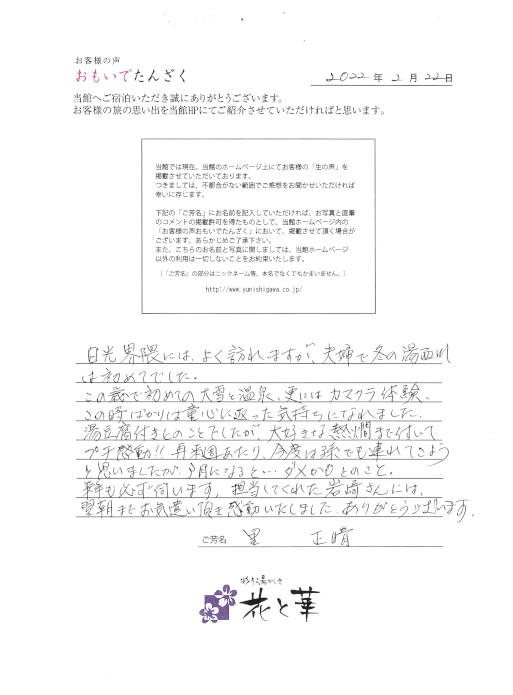 お客様の声
おもいでたんざく
2022年 2月 22日
当館へご宿泊いただき誠にありがとうございます。
お客様の旅の思い出を当館HPにてご紹介させていただければと思います。
当館では現在、当館のホームページ上にてお客様の「生の声」を
掲載させていただいております。
つきましては、不都合がない範囲でご感想をお聞かせいただければ
幸いに存じます。
下記の「ご芳名」にお名前を記入していただければ、お写真と直筆
のコメントの掲載許可を得たものとして、当館ホームページ内の
「お客様の声おもいでたんざく」において、掲載させて頂く場合が
ございます。あらかじめご了承下さい。
また、こちらのお名前と写真に関しましては、当館ホームページ
以外の利用は一切しないことをお約束いたします。
(「ご芳名」の部分はニックネーム等、本名でなくてもかまいません。)
http://www.yunishigawa.co.jp/
日光界隈には、よく訪れますが、夫婦で冬の湯西川
は初めてでした。
この歳で初めての大雪と温泉、更にはカマクラ体験、
この時ばかりは童心に返った気持ちになれました。
湯豆腐付きとのことでしたが、大好きな熱燗まで付いて
プチ感動!! 再来週あたり、今度は孫でも連れてこよう
と思いましたが、3月になると…ダメかもとのこと。
来年も必ず伺います。担当してくれた岩崎さんには、
翌朝までお気遣い頂き感動いたしました。ありがとうございます。
ご芳名 里 正晴
花と華